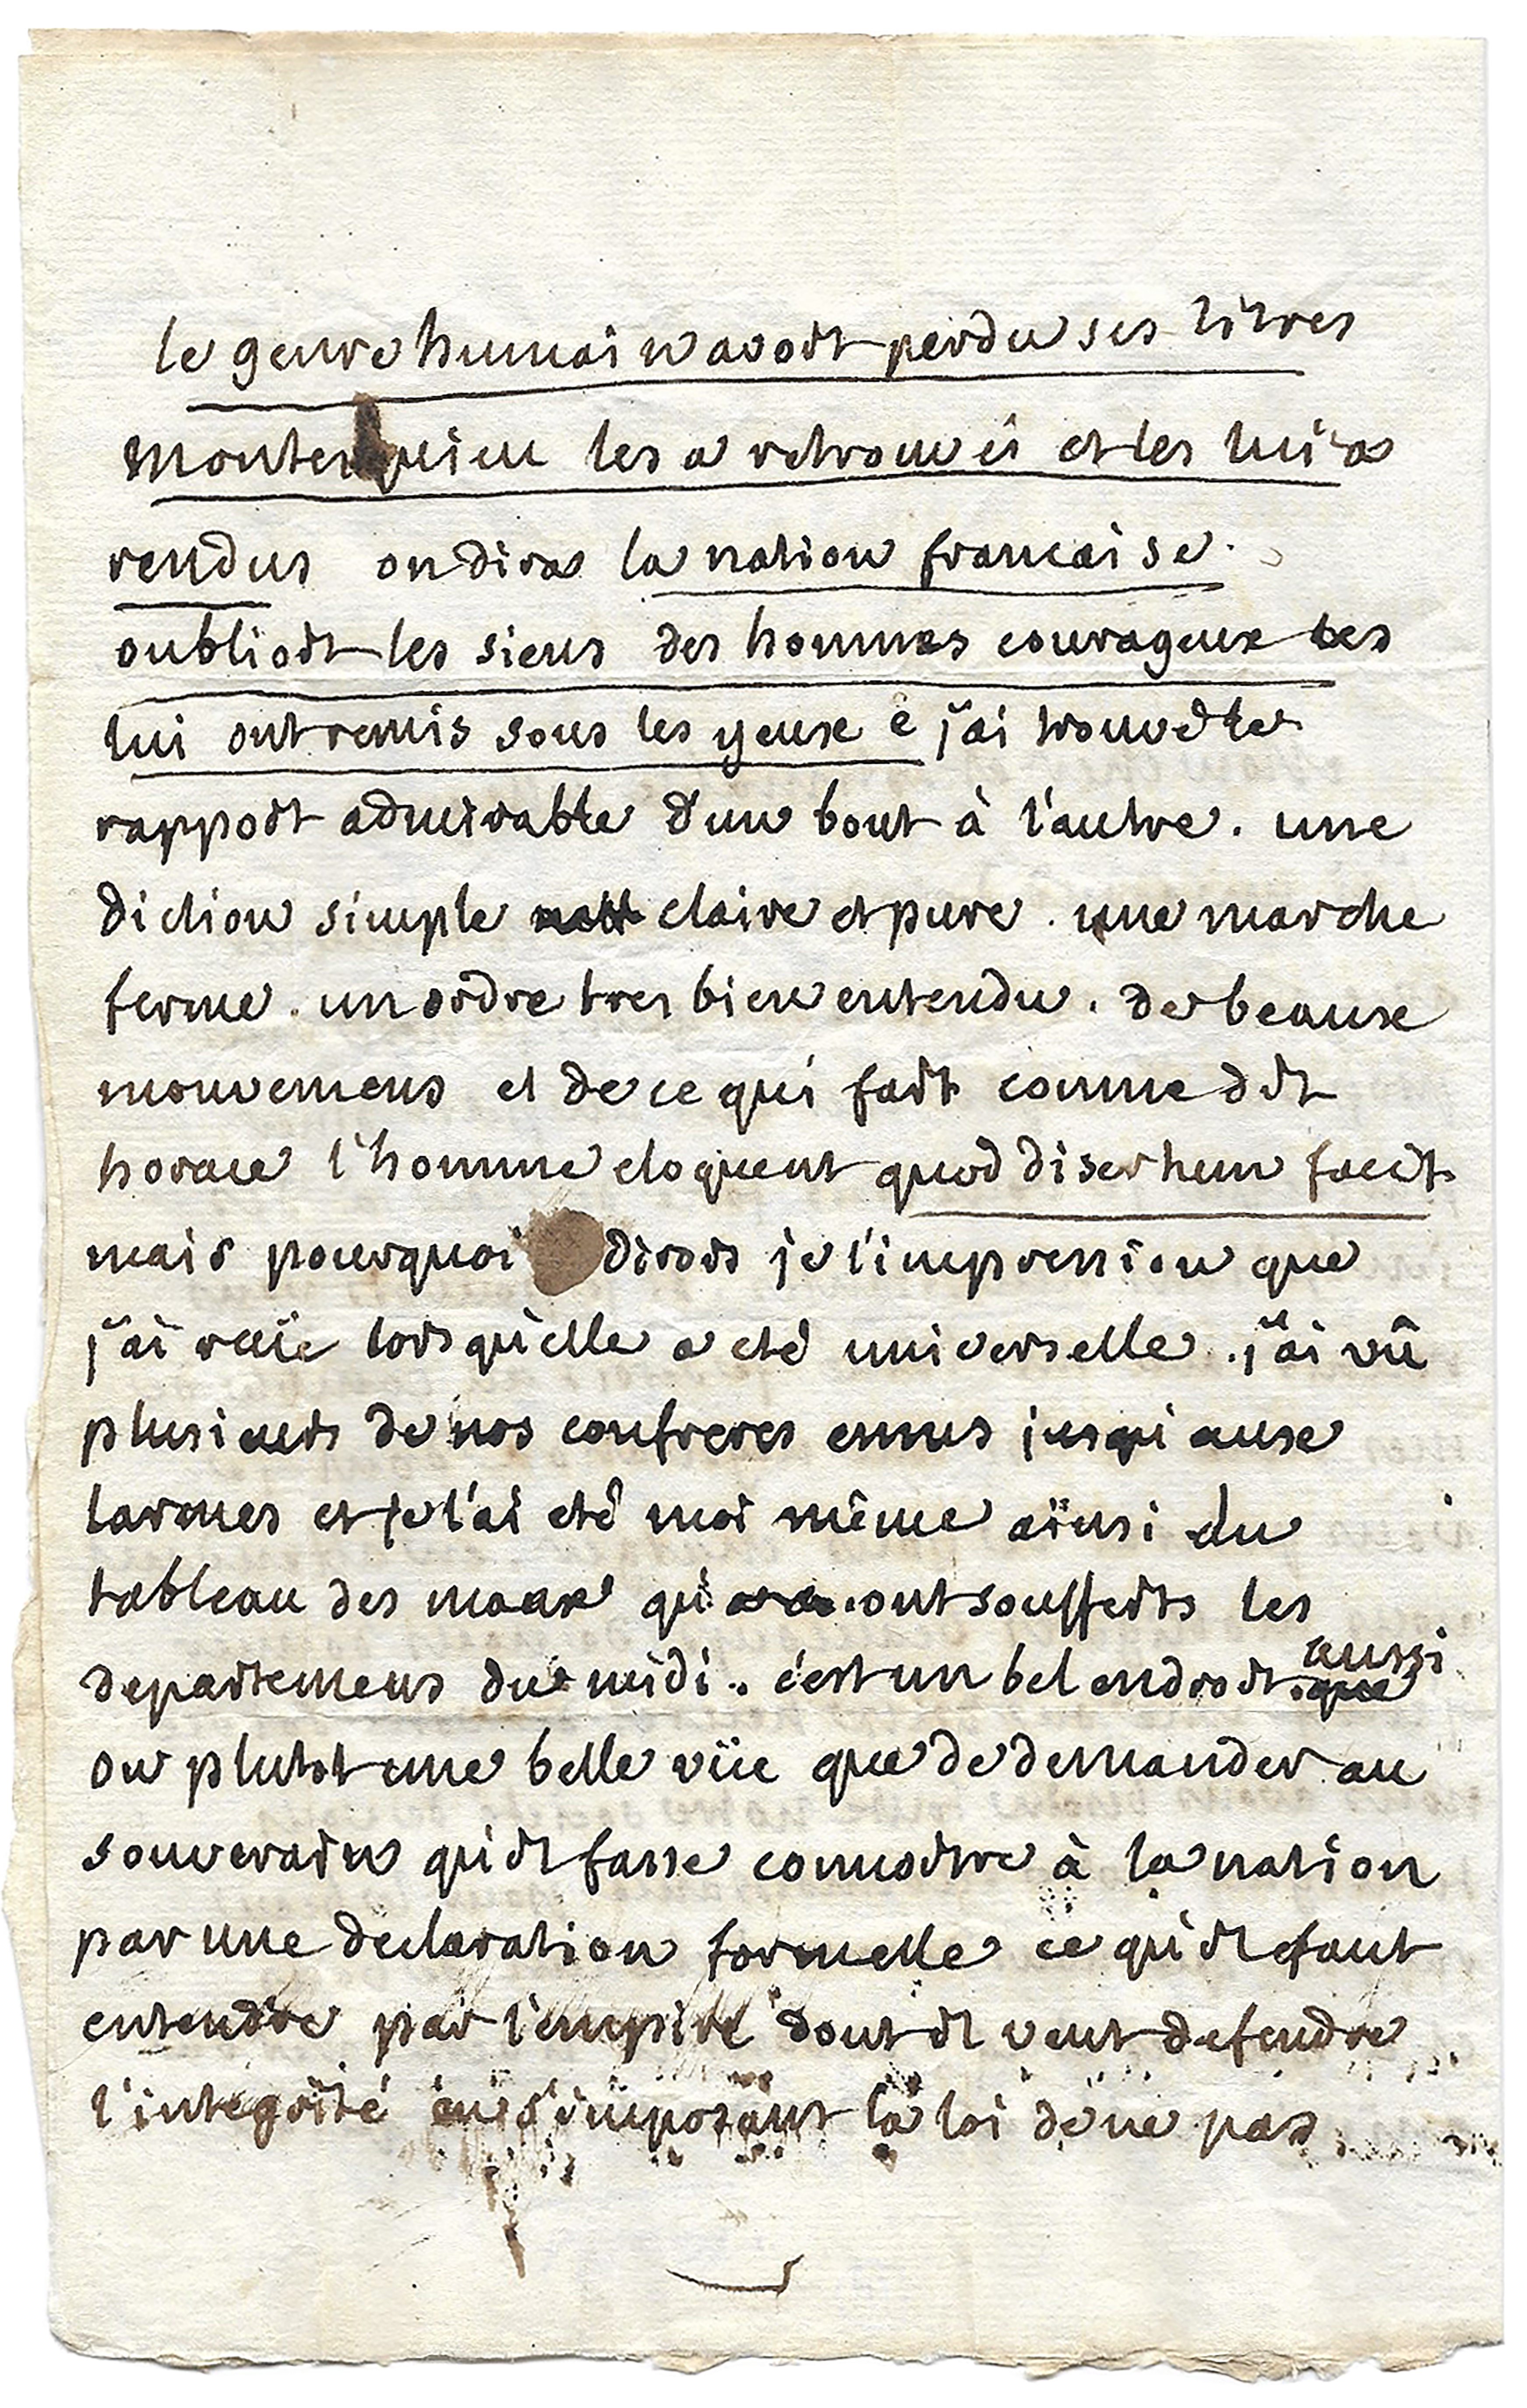 le genre humain avoit perdu ses titres
montesquieu les a retrouvés et les lui a
rendus on dira la nation francaise
oublioit les siens des hommes courageux les
lui ont remis sous les yeux e j'ai trouvé le
rapport admirable d'un bout à l'autre. une
diction simple claire et pure. une marche
ferme. un ordre tres bien entendu. de beaux
mouvemens et de ce qui fait comme dit
horace l'homme eloquent quod disertum facit
mais pourquoi dirois je l'impression que
j'ai reçüe lorsqu'elle a eté universelle. j'ai vû
plusieurs de nos confreres emus jusqu'aux
larmes et je l'ai eté moi même aïnsi du
tableau des maux qu'ont soufferts les
departemens du midi. c'est un bel endroit aussi
ou plutot une belle vüe que de demander au
souverain qu'il fasse connoitre à la nation
par une declaration formelle ce qu'il faut
entendre par l'empire dont il veut defendre
l'integrité en s'imposant la loi de ne pas